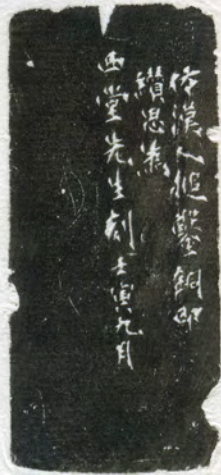 仿漢人鑿銅印
纘思為
西堂先生刻壬寅九月